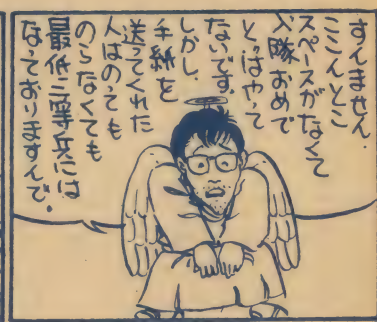 すんません.
ここんとこ
スペースがなくて
入隊おめで
とっはやって
ないです。
しかし、
手紙を
送ってくれた
人はのっても
のらなくても
最低二等兵には
なっておりますんで。